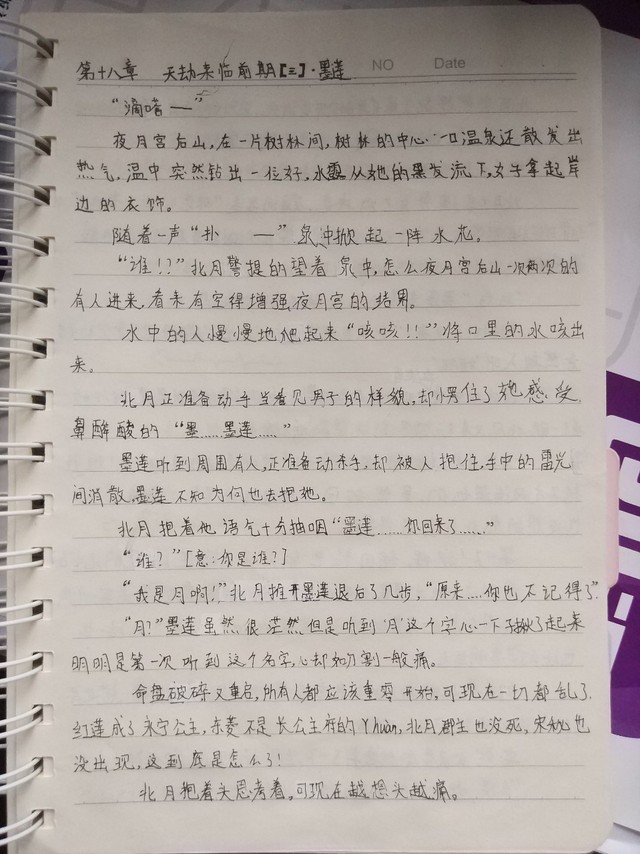 第十八章 天劫来临前期[三]·墨莲 NO Date
“滴嗒—”
夜月宫后山,在一片树林间,树林的中心一口温泉还散发出
热气.温中突然钻出一位好,水露从她的黑发流下,女子拿起岸
边的衣饰。
随着一声“扑 —”泉冲掀起一阵水花。
“谁!!?”北月警提的望着泉中,怎么夜月宫后山一次两次的
有人进来,看来有空得增强夜月宫的结界。
水中的人慢慢地爬起来“咳咳!!”将口里的水咳出
来。
北月正准备动手当看见男子的样貌,却愣住了她感受
鼻酸酸的“墨……墨莲……”
墨莲听到周围有人,正准备动杀手,却被人抱住,手中的雷光
间消散,墨莲不知为何也去抱她。
北月抱着他语气十分抽咽“墨莲……你回来了……”
“谁?”[意:你是谁?]
“我是月啊!”北月推开墨莲退后了几步,“原来....你也不记得了”.
“月?”墨莲虽然很茫然但是听到‘月’这个字心一下子揪了起来
明明是第一次听到这个名字,心却如刀割一般痛。
命盘破碎又重启,所有人都应该重零开始,可现在一切都乱了.
红莲成了永宁公主,赤菱不是长公主府的Yhuan,北月郡主也没死,宋秘也
没出现,这到底是怎么了!
北月抱着头思考着,可现在越想头越痛。